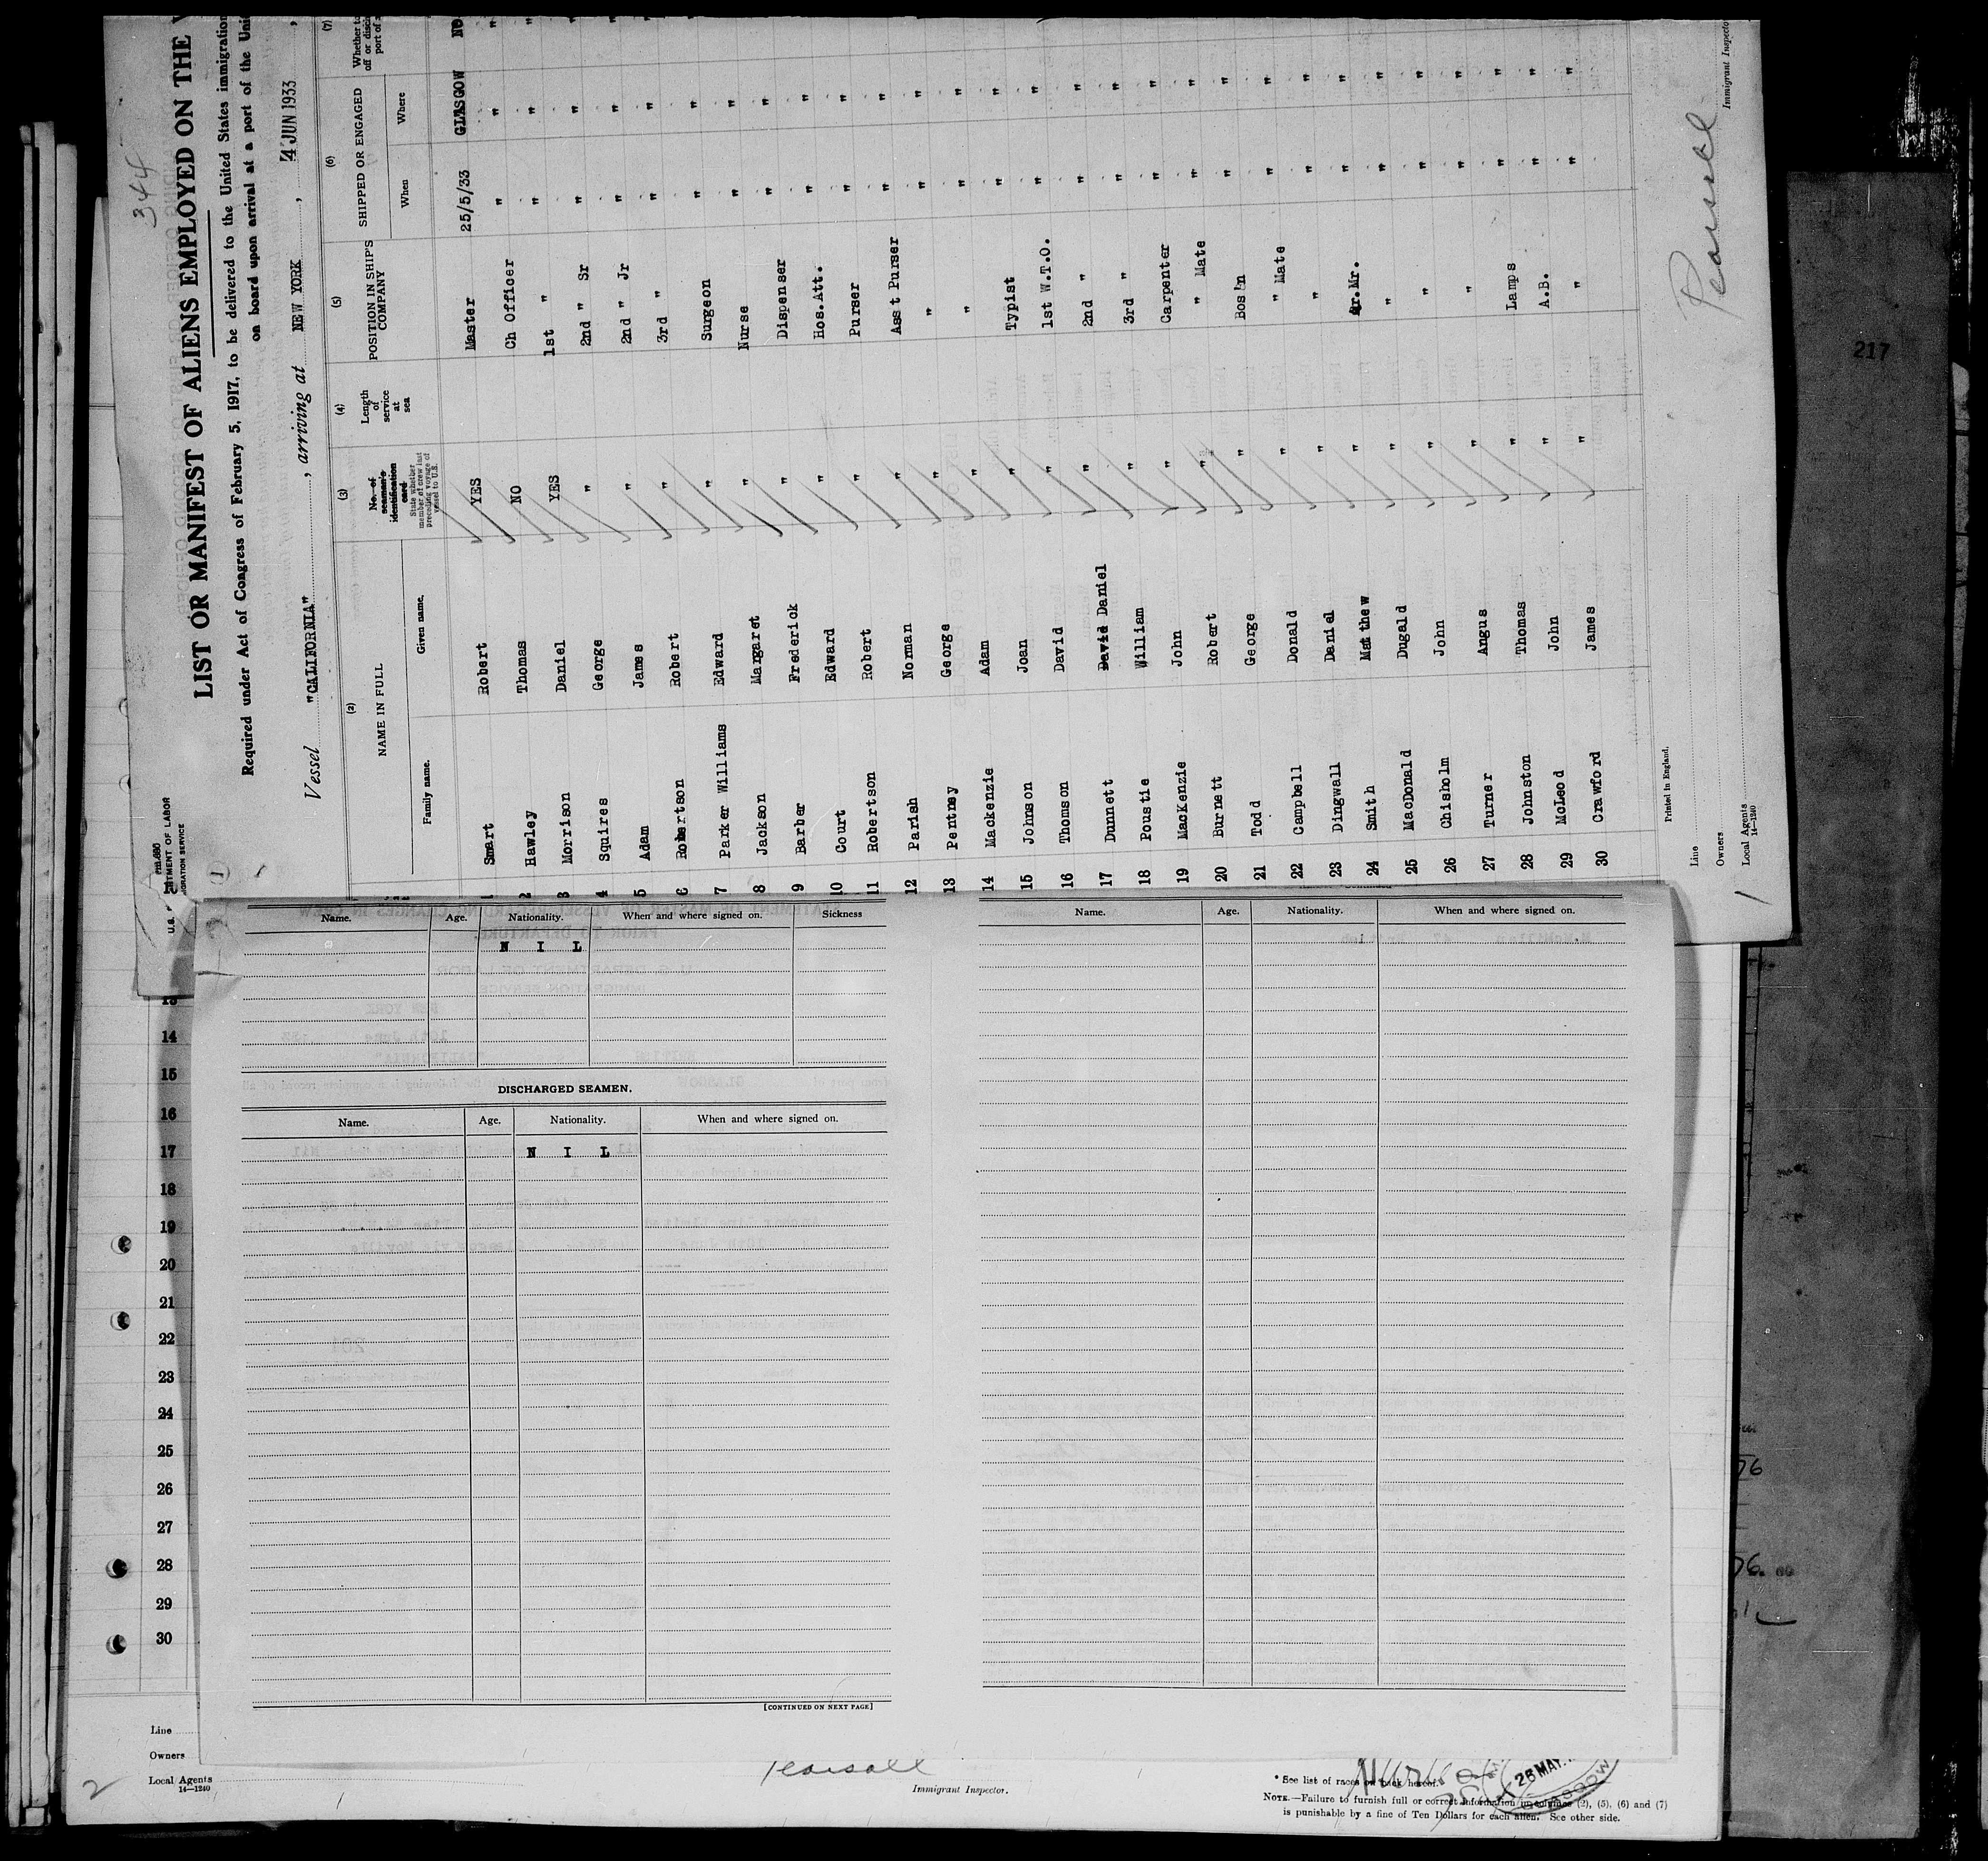 344
LIST OR MANIFEST OF ALIENS EMPLOYED ON THE
Required under Act of Congress of February 5, 1917, to be delivered to the United States immigration
on board upon arrival at a port of the
Vessel "CALIFORNIA", arriving at NEW YORK, 4 JUN 1933,
(2) (3) (4) (5) (6) (7)
NAME IN FULL No. of seaman's identification card State whether member of crew last preceding voyage of vessel to U.S. Length of service at sea POSITION IN SHIP'S COMPANY SHIPPED OR ENGAGED Whether to
Family name. Given name. When Where
1 Smart Robert YES Master 25/5/33 GLASGOW NO
2 Hawley Thomas NO Ch Officer " " "
3 Morrison Daniel YES 1st " " "
4 Squires George " 2nd " Sr " "
5 Adam James " 2nd " Jr " "
6 Robertson Robert " 3rd " " "
7 Parker Williams Edward " Surgeon " "
8 Jackson Margaret " Nurse " "
9 Barber Frederick " Dispenser " "
10 Court Edward " Hos.Att. " "
11 Robertson Robert " Purser " "
12 Parish Norman " Asst Purser " "
13 Pentney George " " " "
14 Mackenzie Adam " " " "
15 Johnson Joan " Typist " "
16 Thomson David " 1st W.T.O. " "
17 Dunnett David Daniel " 2nd " " "
18 Poustie William " 3rd " " "
19 MacKenzie John " Carpenter " "
20 Burnett Robert " " Mate " "
21 Todd George " Bos'n " "
22 Campbell Donald " " Mate " "
23 Dingwall Daniel " " " "
24 Smith Matthew " Qr.Mr. " "
25 MacDonald Dugald " " " "
26 Chisholm John " " " "
27 Turner Angus " " " "
28 Johnston Thomas " Lamps " "
29 McLeod John " A.B. " "
30 Crawford James " " " "
Printed in England.
Line
Owners
Local Agents
14—1240
Immigrant Inspector
217
Name. Age. Nationality. When and where signed on. Sickness
N I L
DISCHARGED SEAMEN.
Name. Age. Nationality. When and where signed on.
N I L
[CONTINUED ON NEXT PAGE]
Name. Age. Nationality. When and where signed on.
13
14
15
16
17
18
19
20
21
22
23
24
25
26
27
28
29
30
Line
Owners
Local Agents
14—1240
2
Immigrant Inspector.
26 MAY
GLASGOW
* See list of races on back hereof.
NOTE.—Failure to furnish full or correct information in columns (2), (5), (6) and (7)
is punishable by a fine of Ten Dollars for each alien. See other side.